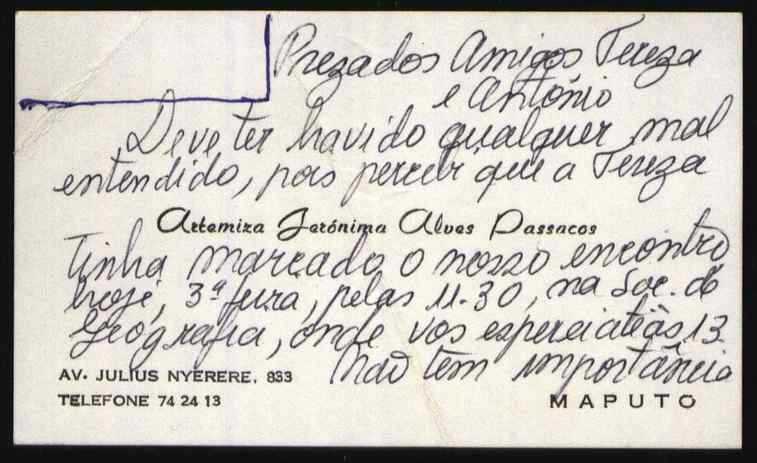 Prezados Amigos Tereza
e António
Deve ter havido qualquer mal
entendido, pois percebi que a Tereza
Artemiza Jerónima Alves Passacos
tinha marcado o nosso encontro
hoje, 3ª feira, pelas 11.30, na Soc. de
Geografia, onde vos esperei até às 13.
Não tem importância
AV. JULIUS NYERERE, 833
TELEFONE 74 24 13
MAPUTO